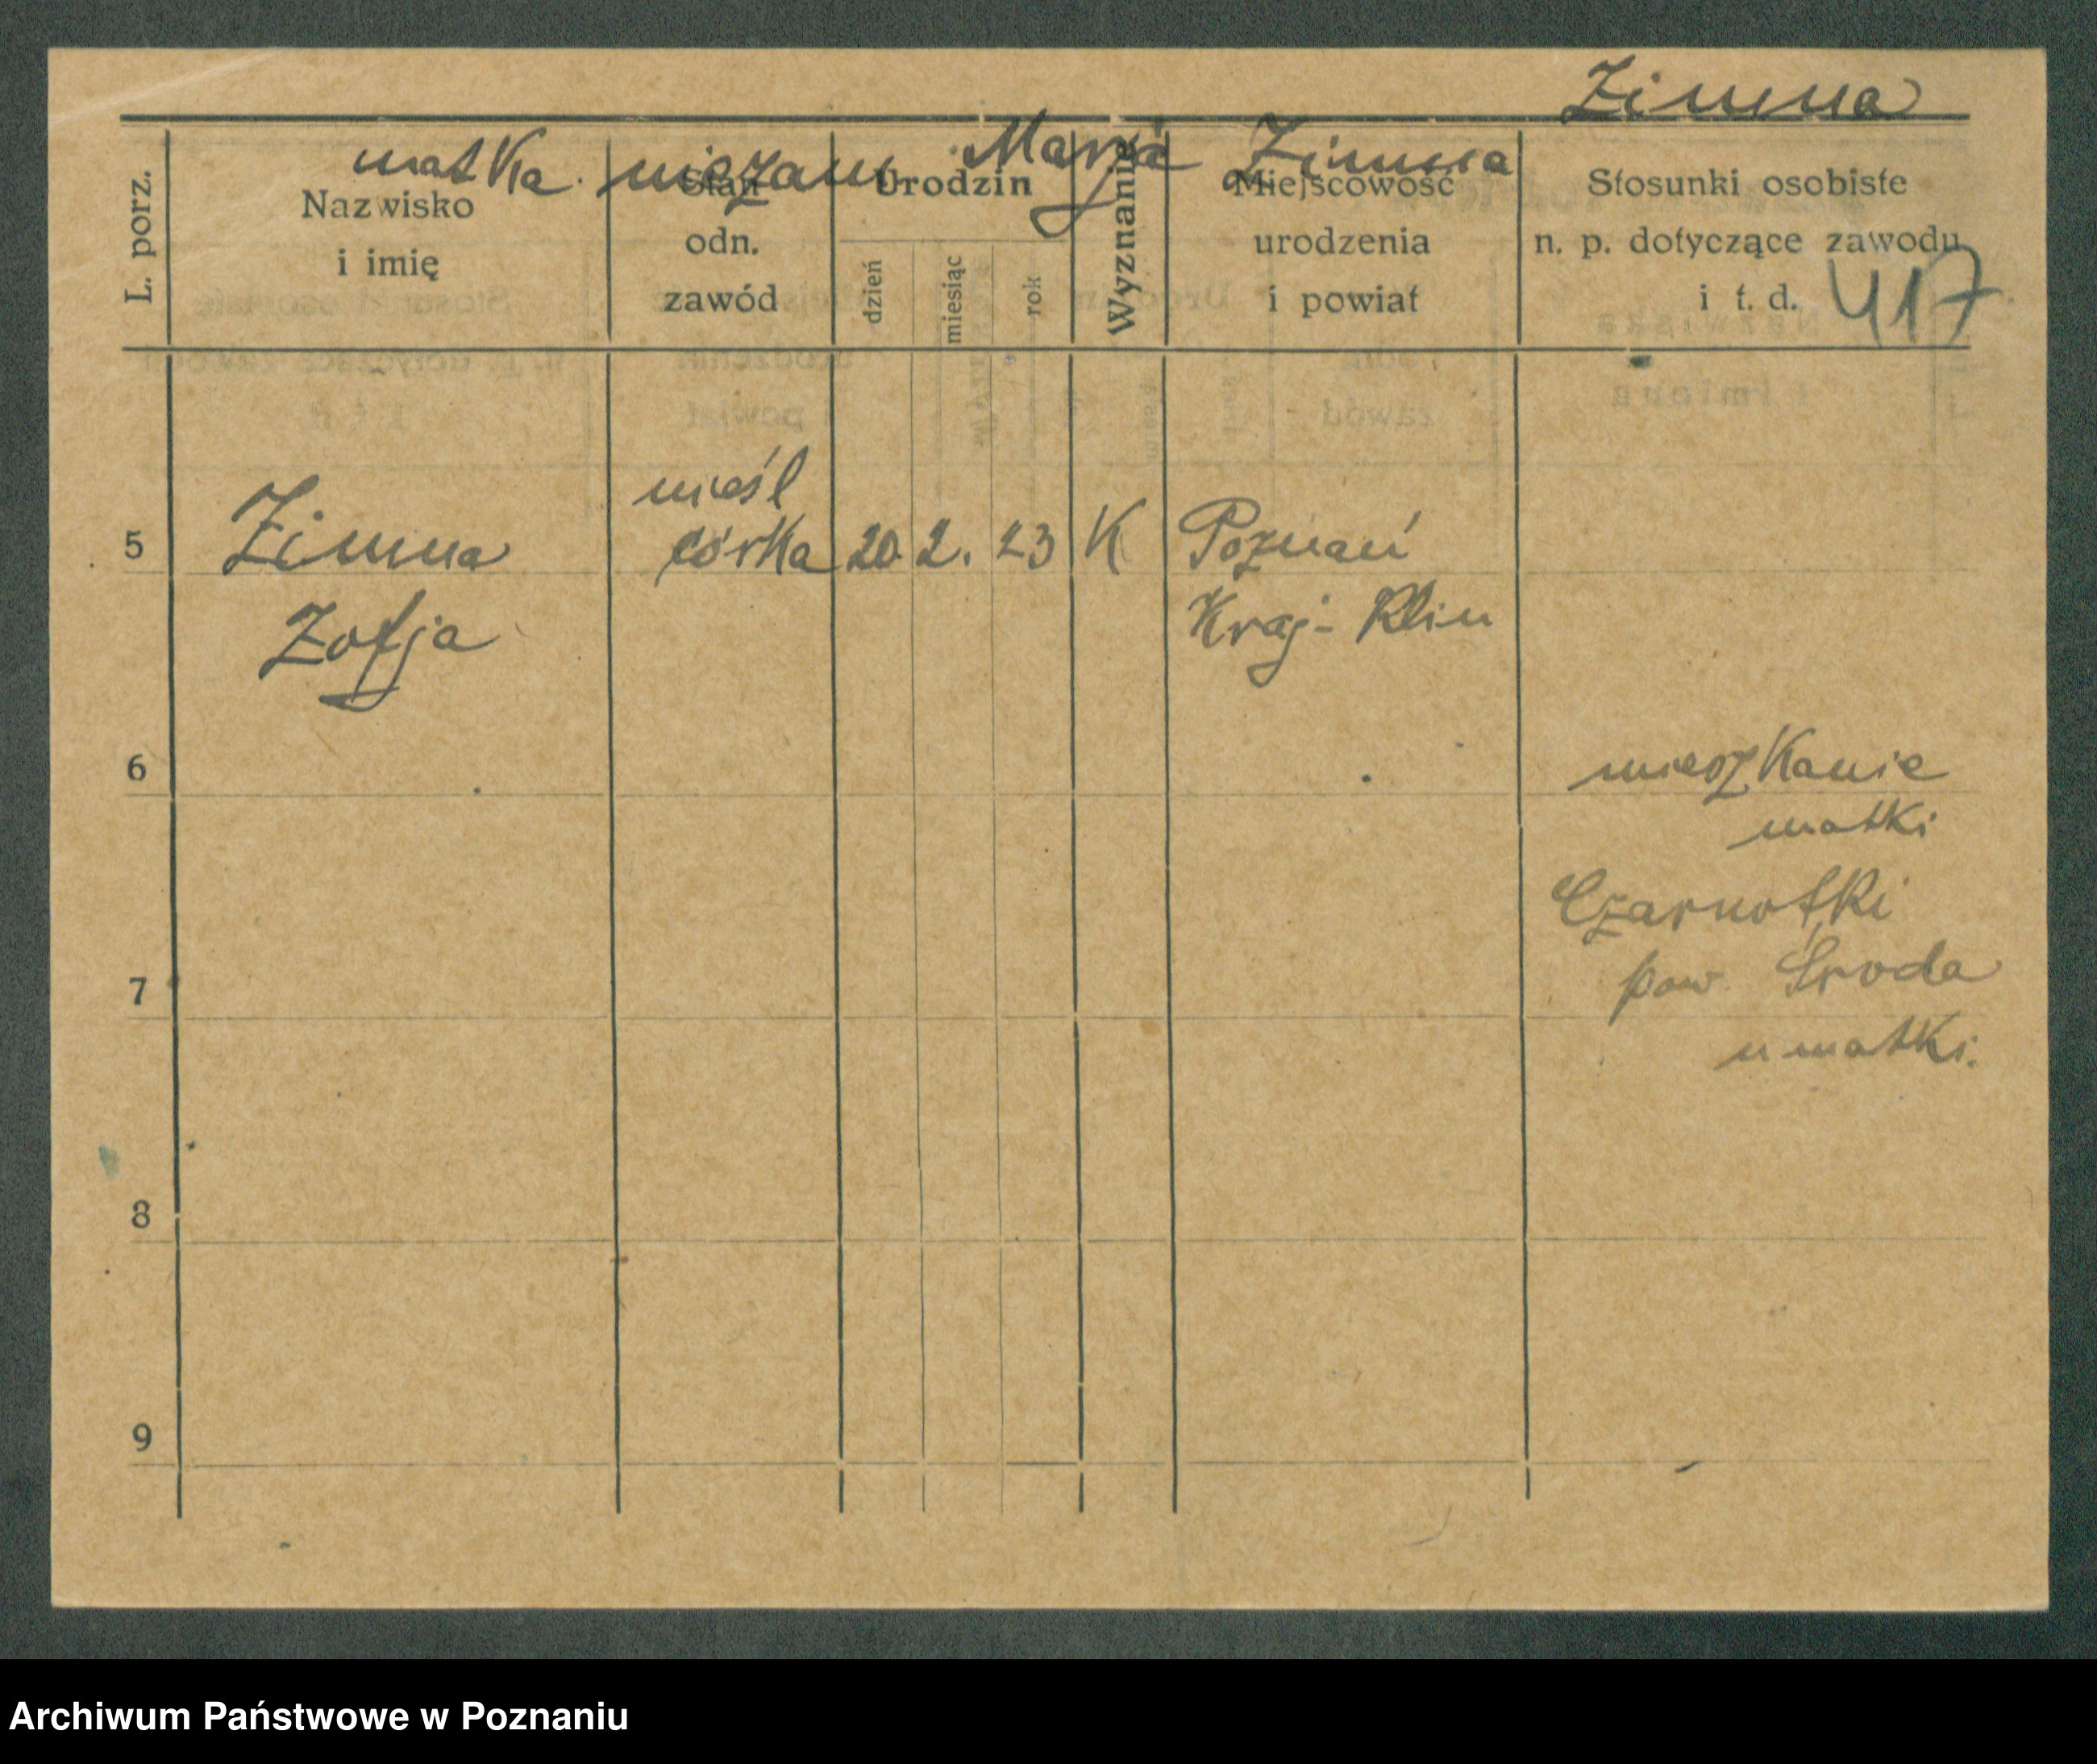 Zimna
matka niezam. Marja Zimna
L. porz.
Nazwisko
i imię
Stan
odn.
zawód
Urodzin
dzień
miesiąc
rok
Wyznanie
Miejscowość
urodzenia
i powiat
Stosunki osobiste
n. p. dotyczące zawodu
i t. d.
417
5
Zimna
Zofja
nieśl
córka
20. 2. 23
K
Poznań
Kraj-Klin
6
mieszkanie
matki
Czarnotki
pow. Środa
u matki.
7
8
9
Archiwum Państwowe w Poznaniu